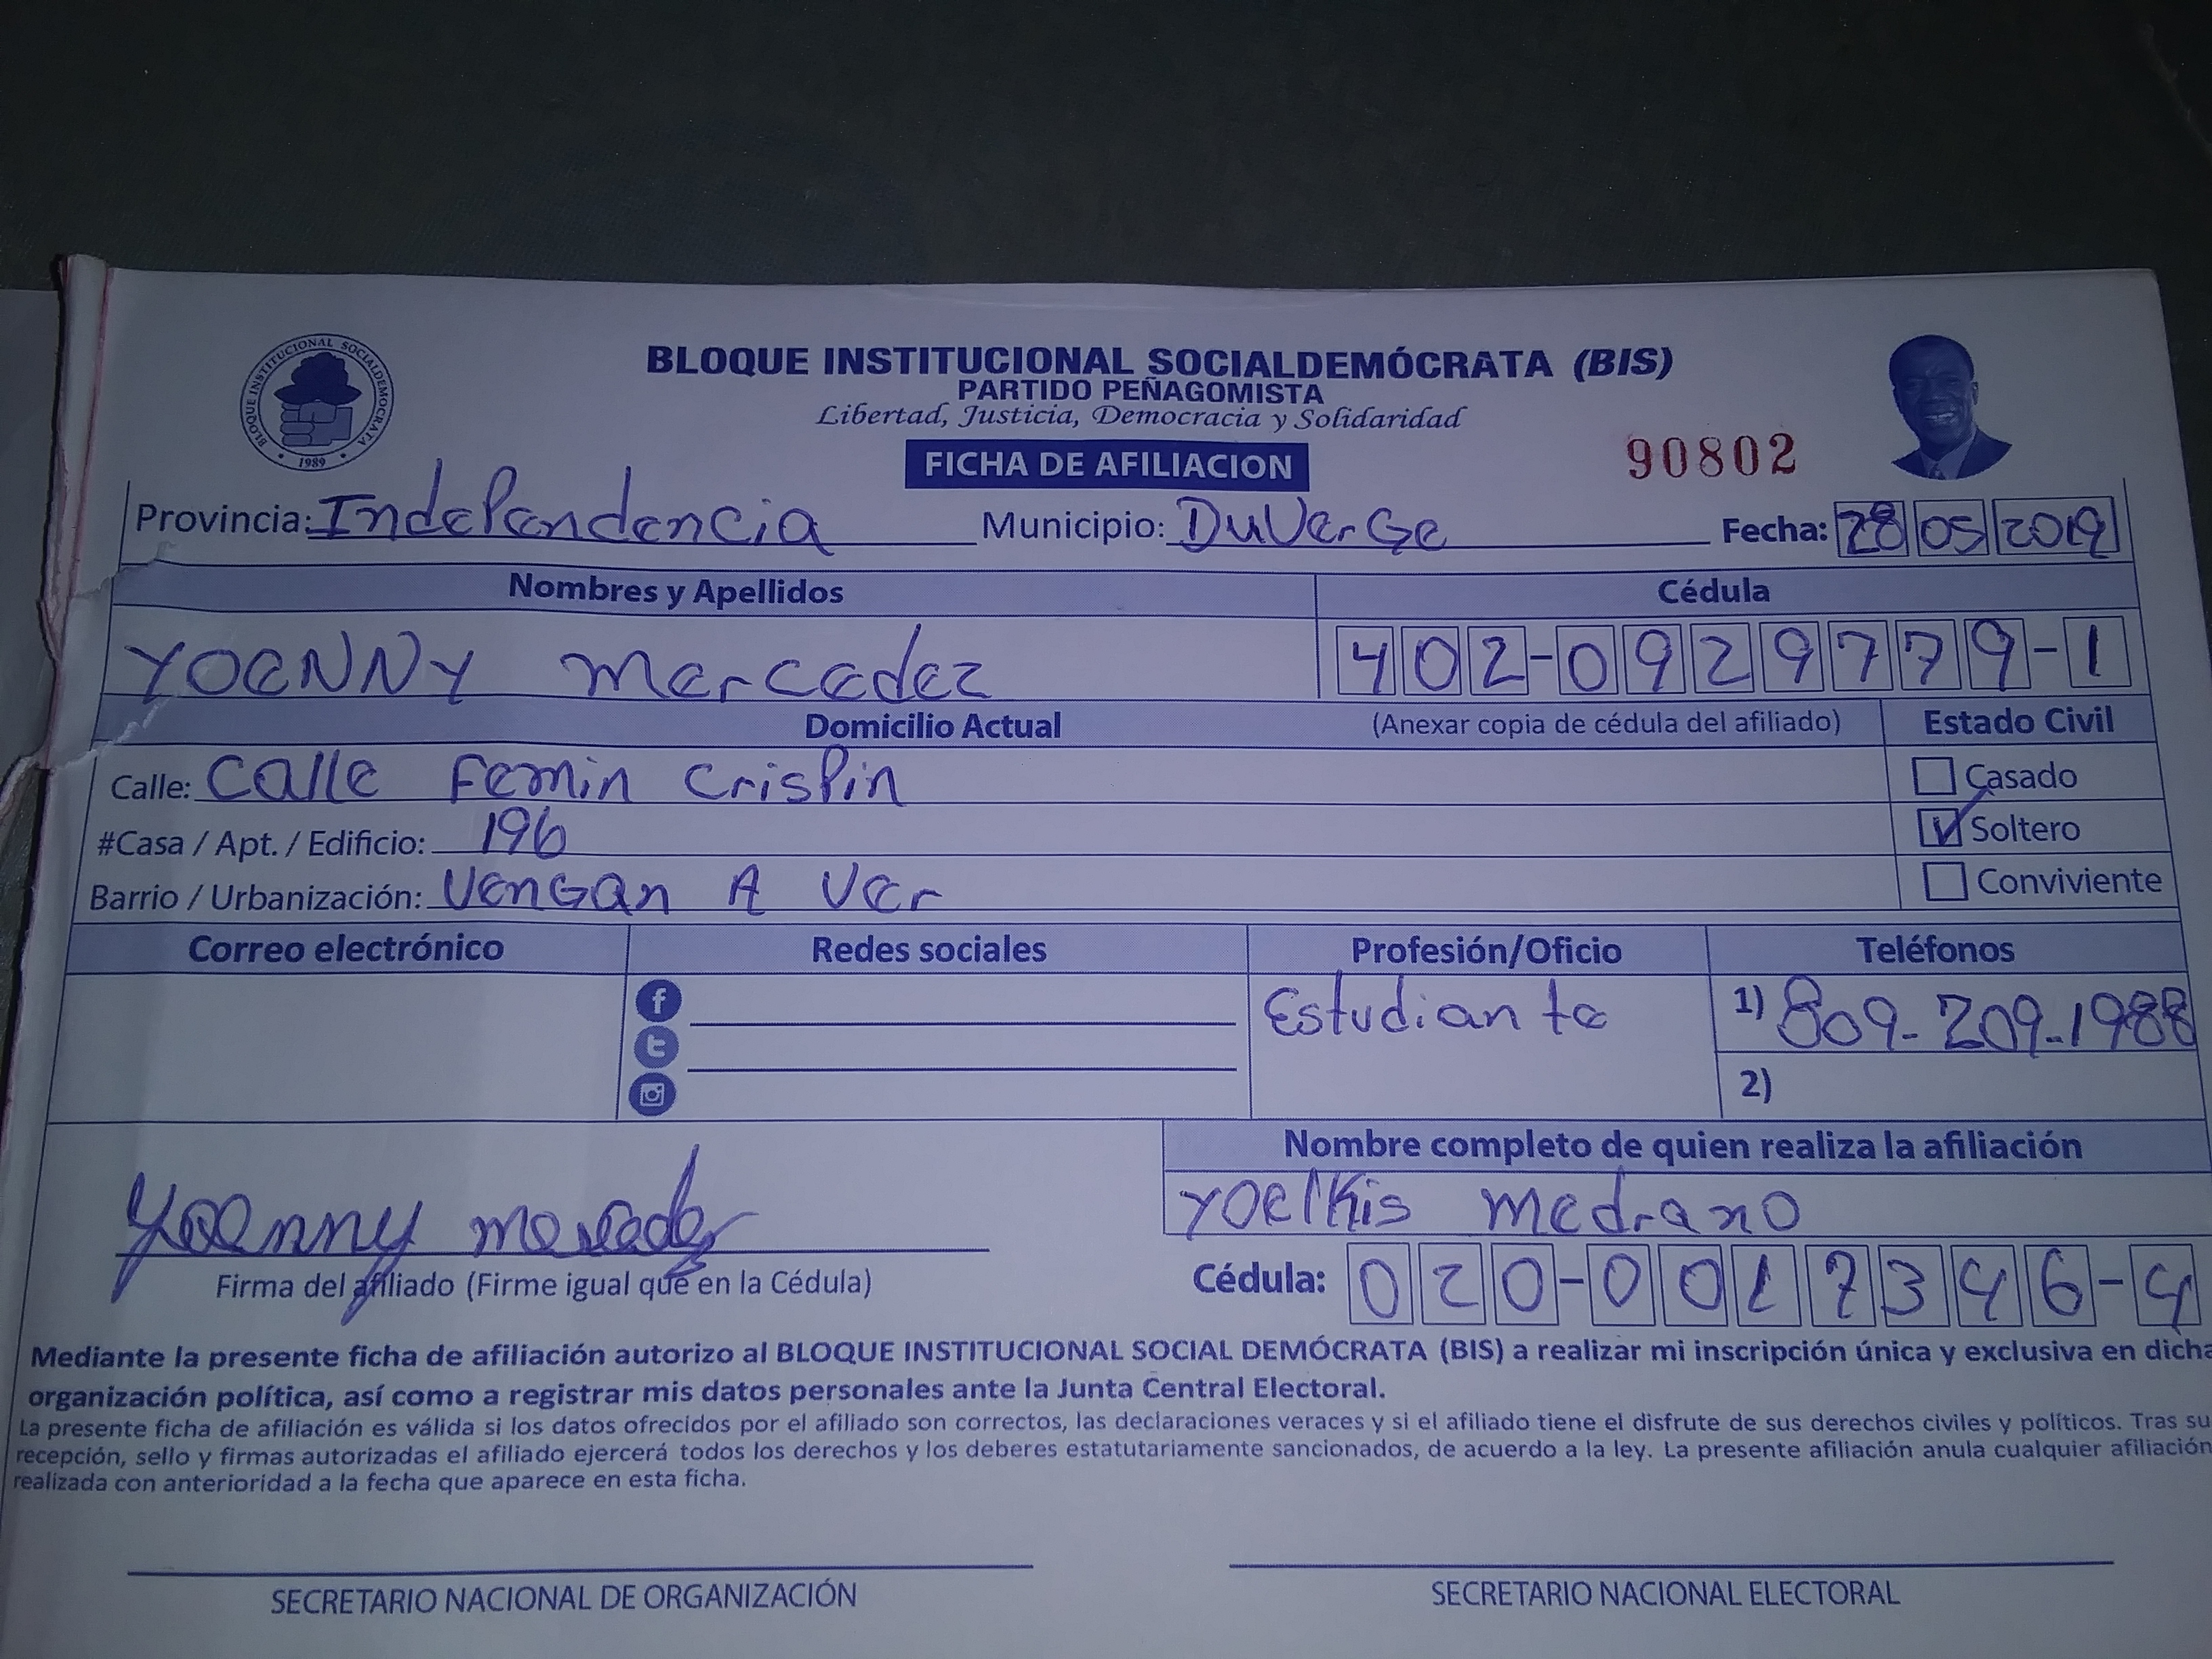 BLOQUE INSTITUCIONAL SOCIALDEMOCRATA
1989
BLOQUE INSTITUCIONAL SOCIALDEMÓCRATA (BIS)
PARTIDO PEÑAGOMISTA
Libertad, Justicia, Democracia y Solidaridad
FICHA DE AFILIACION
90802
Provincia: Independencia Municipio: DuVerGe Fecha: 28 05 2019
Nombres y Apellidos Cédula
YOENNY mercedez 402-0929779-1
Domicilio Actual (Anexar copia de cédula del afiliado) Estado Civil
Calle: Calle Femin Crispin Casado
#Casa / Apt. / Edificio: 196 Soltero
Barrio / Urbanización: VenGan A Ver Conviviente
Correo electrónico Redes sociales Profesión/Oficio Teléfonos
Estudiante 1) 809-209-1988
2)
Nombre completo de quien realiza la afiliación
Yoenny mercedez YOelKis medrano
Firma del afiliado (Firme igual que en la Cédula) Cédula: 020-0017346-4
Mediante la presente ficha de afiliación autorizo al BLOQUE INSTITUCIONAL SOCIAL DEMÓCRATA (BIS) a realizar mi inscripción única y exclusiva en dicha
organización política, así como a registrar mis datos personales ante la Junta Central Electoral.
La presente ficha de afiliación es válida si los datos ofrecidos por el afiliado son correctos, las declaraciones veraces y si el afiliado tiene el disfrute de sus derechos civiles y políticos. Tras su
recepción, sello y firmas autorizadas el afiliado ejercerá todos los derechos y los deberes estatutariamente sancionados, de acuerdo a la ley. La presente afiliación anula cualquier afiliación
realizada con anterioridad a la fecha que aparece en esta ficha.
SECRETARIO NACIONAL DE ORGANIZACIÓN SECRETARIO NACIONAL ELECTORAL